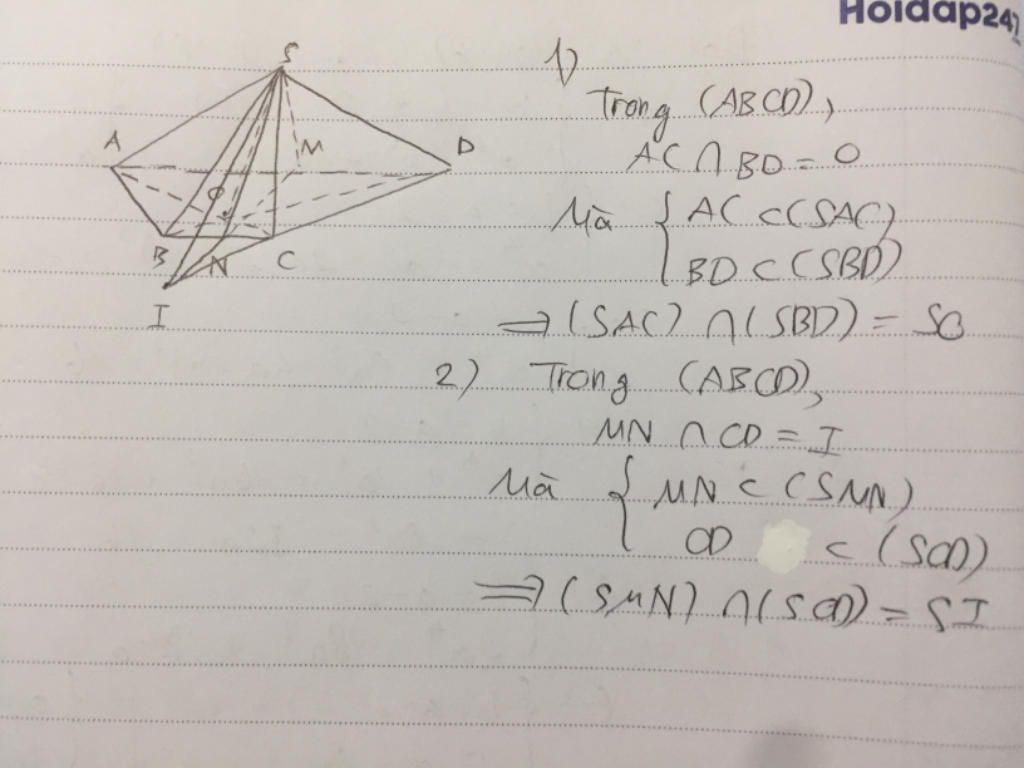 Hoidap247
S
A
M
D
O
B
N
C
I
1)
Trong (ABCD),
AC ∩ BD = O
Mà { AC ⊂ (SAC)
BD ⊂ (SBD)
⇒ (SAC) ∩ (SBD) = SO
2) Trong (ABCD),
MN ∩ CD = I
Mà { MN ⊂ (SMN)
CD ⊂ (SCD)
⇒ (SMN) ∩ (SCD) = SI